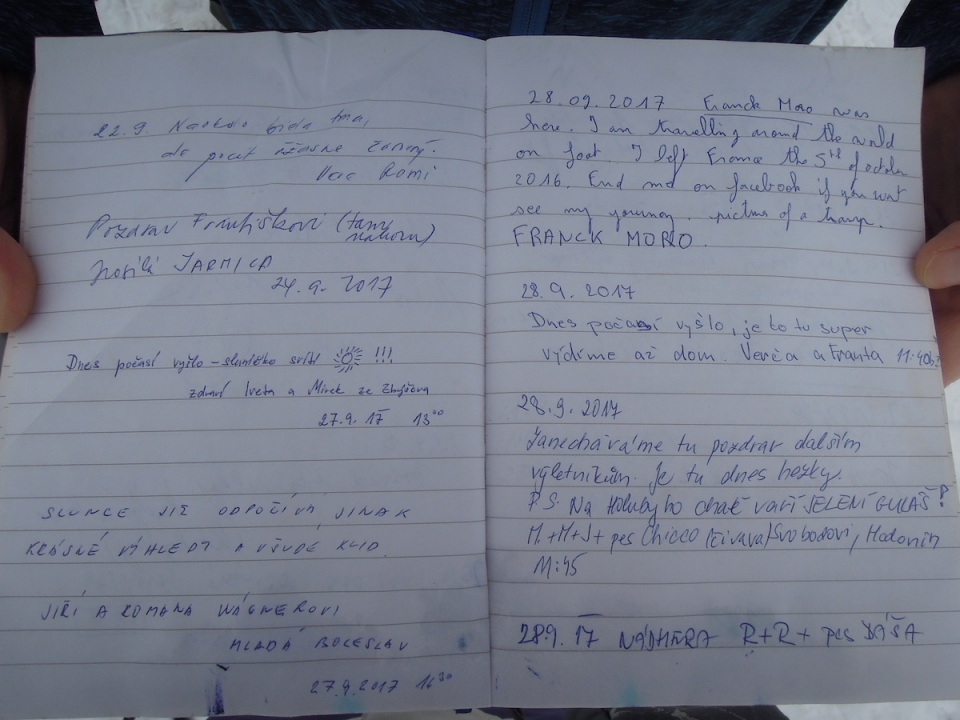 22.9.
do pocit úžasně
Pozdrav Františkovi
JARMILA
24.9. 2017
Dnes počasí vyšlo – sluníčko svítí !!!
zdraví Iveta a Mirek ze Zbýšova
27.9. 17 13⁰⁰
SLUNCE JIŽ ODPOČÍVÁ, JINAK
KRÁSNÉ VÝHLEDY A VŠUDE KLID.
JIŘÍ A ROMANA WÁGNEROVI
MLADÁ BOLESLAV
27.9.2017
28.09.2017 Franck Moro was
here. I am travelling around the world
on foot. I left France the 5th of october
2016. End me on facebook if you want
see my journey. pictures of a tramp.
FRANCK MORO.
28.9.2017
Dnes počasí vyšlo, je to tu super
výdíme až dom. Verča a Franta 11:40h.
28.9.2017
Zanecháváme tu pozdrav dalším
výletníkům. Je tu dnes hezky.
P.S: Na Holubyho chatě vaří JELENÍ GULÁŠ!
M.+M+J+ pes Chicco (čivava) Svobodovi, Hodonín
11:45
28.9. 17 NÁDHERA R+R+ pes DÁŠA